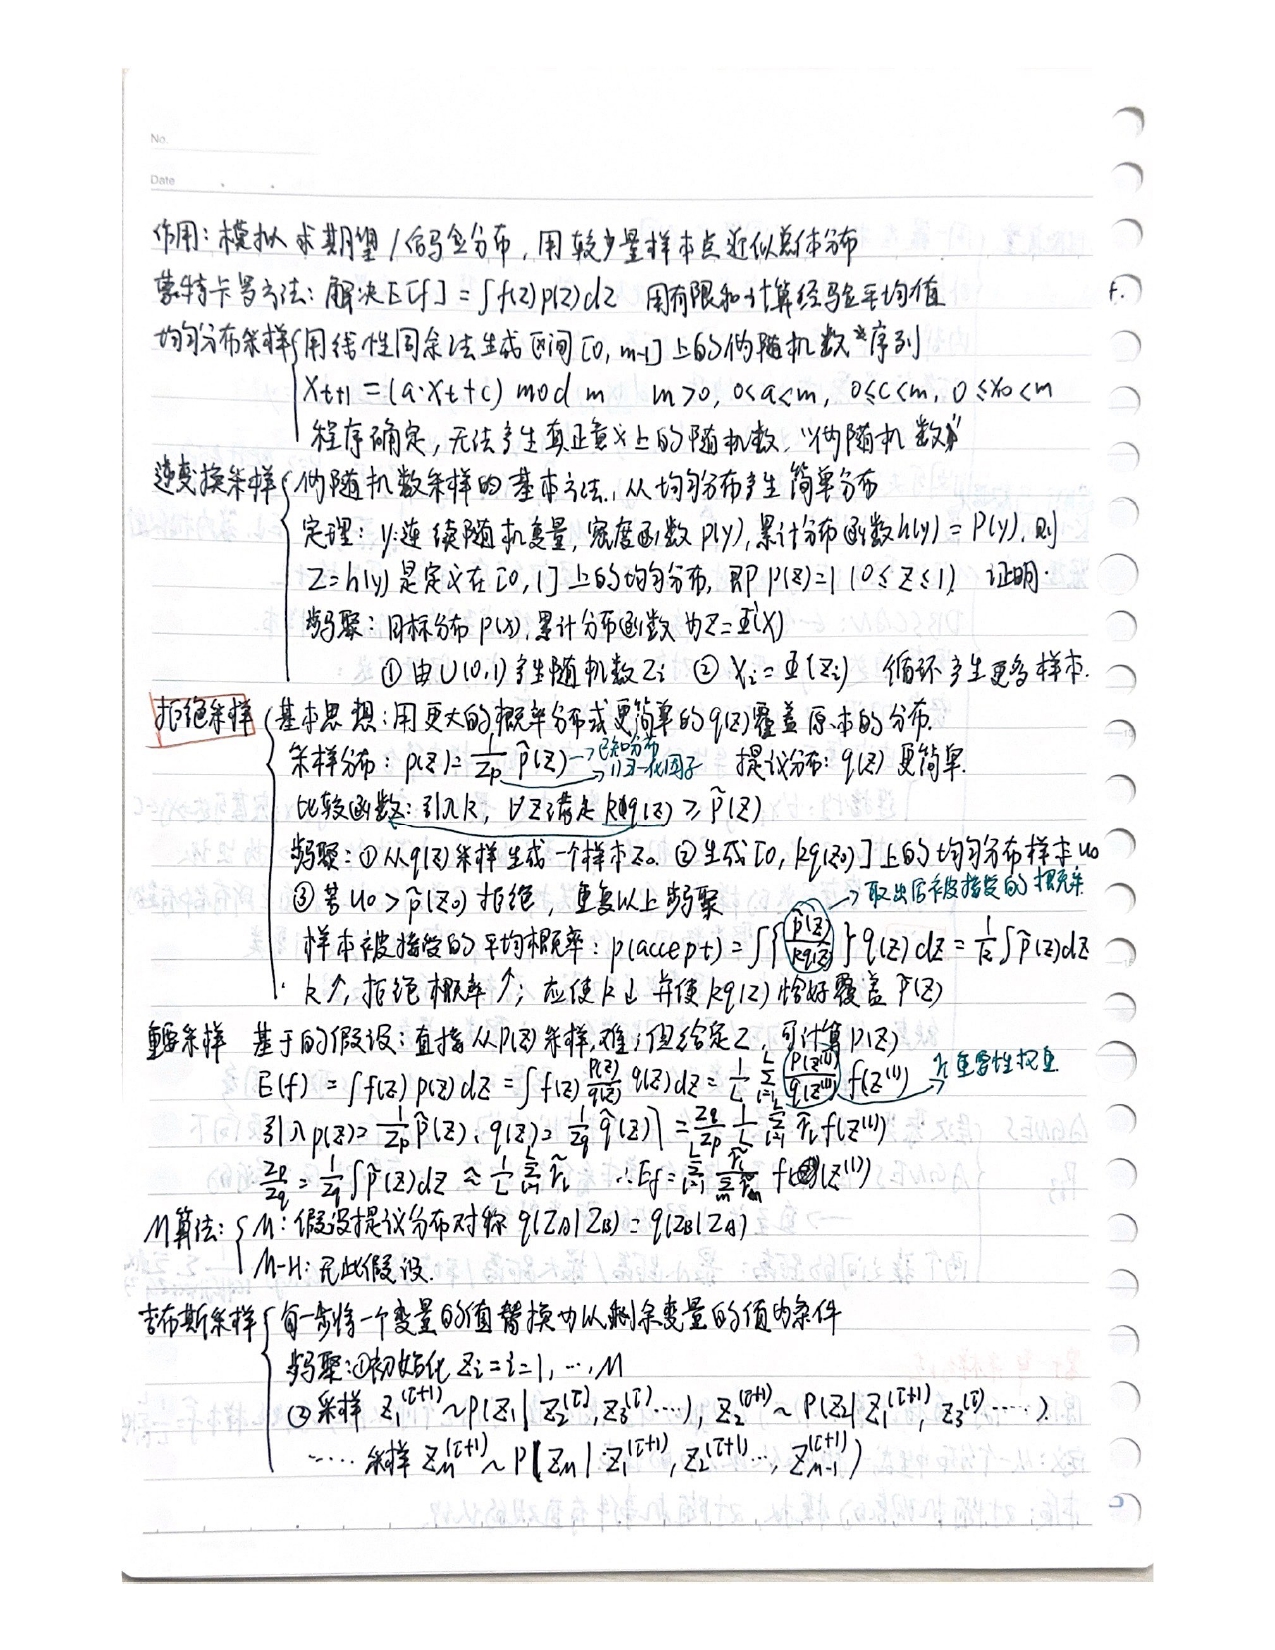 No.
Date
作用：模拟 求期望/后验分布，用较少量样本点近似总体分布
蒙特卡罗方法：解决E[f]=∫f(z)p(z)dz 用有限和计算经验平均值
均匀分布采样 用线性同余法生成区间[0, m-1]上的伪随机数序列
Xt+1=(a·Xt+c) mod m m>0, 0<a<m, 0≤c<m, 0≤X0<m
程序确定，无法产生真正意义上的随机数，“伪随机数”
逆变换采样 伪随机数采样的基本方法，从均匀分布产生简单分布
定理：y:连续随机变量，密度函数p(y),累计分布函数h(y)=P(y),则
Z=h(y)是定义在[0,1]上的均匀分布，即P(z)=1 (0≤Z≤1) 证明.
步骤：目标分布p(x),累计分布函数为Z=Φ(x)
①由U(0,1)产生随机数Zi ②Xi=Φ(Zi) 循环产生更多样本.
拒绝采样 基本思想：用更大的概率分布或更简单的q(z)覆盖原本的分布.
采样分布：p(z)=1/Zp p̃(z) →已知分布 →归一化因子 提议分布：q(z)更简单.
比较函数：引入k, ∀z满足kq(z)≥p̃(z)
步骤：①从q(z)采样生成一个样本Z0. ②生成[0, kq(z0)]上的均匀分布样本u0
③若u0>p̃(z0)拒绝，重复以上步骤 →取出后被接受的概率
样本被接受的平均概率：p(accept)=∫{p̃(z)/kq(z)}q(z)dz=1/k∫p̃(z)dz
k↑,拒绝概率↑；应使k↓并使kq(z)恰好覆盖p̃(z)
重要采样 基于的假设：直接从p(z)采样,难；但给定z，可计算p(z)
E(f)=∫f(z)p(z)dz=∫f(z)p(z)/q(z) q(z)dz=1/L Σ(l=1..L) p(z⁽ˡ⁾)/q(z⁽ˡ⁾) f(z⁽ˡ⁾) → rl重要性权重
引入p(z)=1/Zp p̃(z), q(z)=1/Zq q̃(z) =Zq/Zp 1/L Σ(l=1..L) r̃l f(z⁽ˡ⁾)
Zp/Zq=1/Zq∫p̃(z)dz≈1/L Σ(l=1..L) r̃l ∴Ef=Σ(l=1..L) r̃l/Σm r̃m f(z⁽ˡ⁾)
M算法：M：假设提议分布对称q(ZA|ZB)=q(ZB|ZA)
M-H：无此假设.
吉布斯采样 每一步将一个变量的值替换为以剩余变量的值为条件
步骤:①初始化Zi=i=1,…,M
②采样Z1^(τ+1)~P(Z1|Z2^(τ),Z3^(τ)…), Z2^(τ+1)~P(Z2|Z1^(τ+1),Z3^(τ)……).
……采样ZM^(τ+1)~P(ZM|Z1^(τ+1),Z2^(τ+1)…,ZM-1^(τ+1))